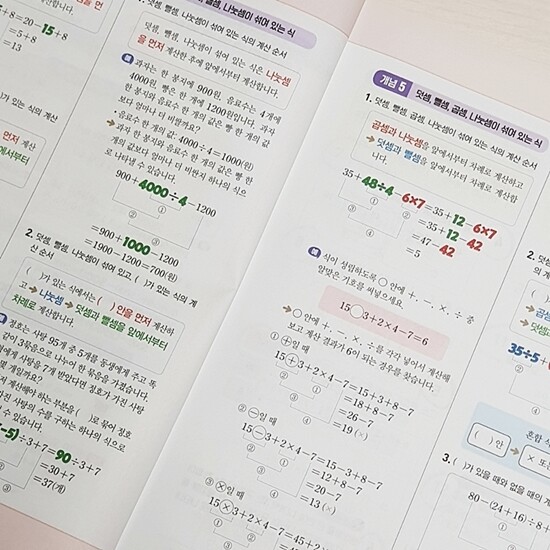 5+8=20-15+8
=5+8
=13
덧셈, 뺄셈, 나눗셈이 섞여 있는 식
덧셈, 뺄셈, 나눗셈이 섞여 있는 식의 계산 순서
덧셈, 뺄셈, 나눗셈이 섞여 있는 식은 나눗셈
을 먼저 계산한 후에 앞에서부터 차례로 계산합니다.
예 과자는 한 봉지에 900원, 음료수는 4개에
4000원, 빵은 한 개에 1200원입니다. 과자
한 봉지와 음료수 한 개의 값은 빵 한 개의 값
보다 얼마나 더 비쌀까요?
• 음료수 한 개의 값: 4000÷4=1000(원)
➔ 과자 한 봉지와 음료수 한 개의 값은 빵 한
개의 값보다 얼마나 더 비싼지 하나의 식으
로 나타낼 수 있습니다.
900+4000÷4-1200
① ② ③
=900+1000-1200
=1900-1200=700(원)
2. 덧셈, 뺄셈, 나눗셈이 섞여 있고, ( )가 있는 식의 계
산 순서
( )가 있는 식에서는 ( ) 안을 먼저 계산하
고 ➔ 나눗셈 ➔ 덧셈과 뺄셈을 앞에서부터
차례로 계산합니다.
정호는 사탕 95개 중 5개를 동생에게 주고 똑
같이 3묶음으로 나누어 한 묶음을 가졌습니다.
사탕 7개를 받았다면 정호가 가진 사탕
몇 개일까요?
저 계산해야 하는 부분을 ( )로 묶어 정호
가진 사탕의 수를 구하는 하나의 식으로
수 있습니다.
-5)÷3+7=90÷3+7
=30+7
=37(개)
③
개념 5 덧셈, 뺄셈, 곱셈, 나눗셈이 섞여 있는 식
1. 덧셈, 뺄셈, 곱셈, 나눗셈이 섞여 있는 식의 계산 순서
곱셈과 나눗셈을 앞에서부터 차례로 계산하고
➔ 덧셈과 뺄셈을 앞에서부터 차례로 계산합
니다.
35+48÷4-6×7=35+12-6×7
=35+12-42
=47-42
=5
① ② ③ ④
예 식이 성립하도록 ○ 안에 +, -, ×, ÷ 중
알맞은 기호를 써넣으세요.
15○3+2×4-7=6
➔ ○ 안에 +, -, ×, ÷를 각각 넣어서 계산해
보고 계산 결과가 6이 되는 경우를 찾습니다.
① +일 때
15+3+2×4-7=15+3+8-7
=18+8-7
=26-7
=19 (×)
② -일 때
15-3+2×4-7=15-3+8-7
=12+8-7
=20-7
=13 (×)
③ ×일 때
15×3+2×4-7=45+
2. 덧셈
35÷5+6
혼합
( ) 안 ➔ × 또는
3. ( )가 있을 때와 없을 때의 계
80-(24+16)÷8+